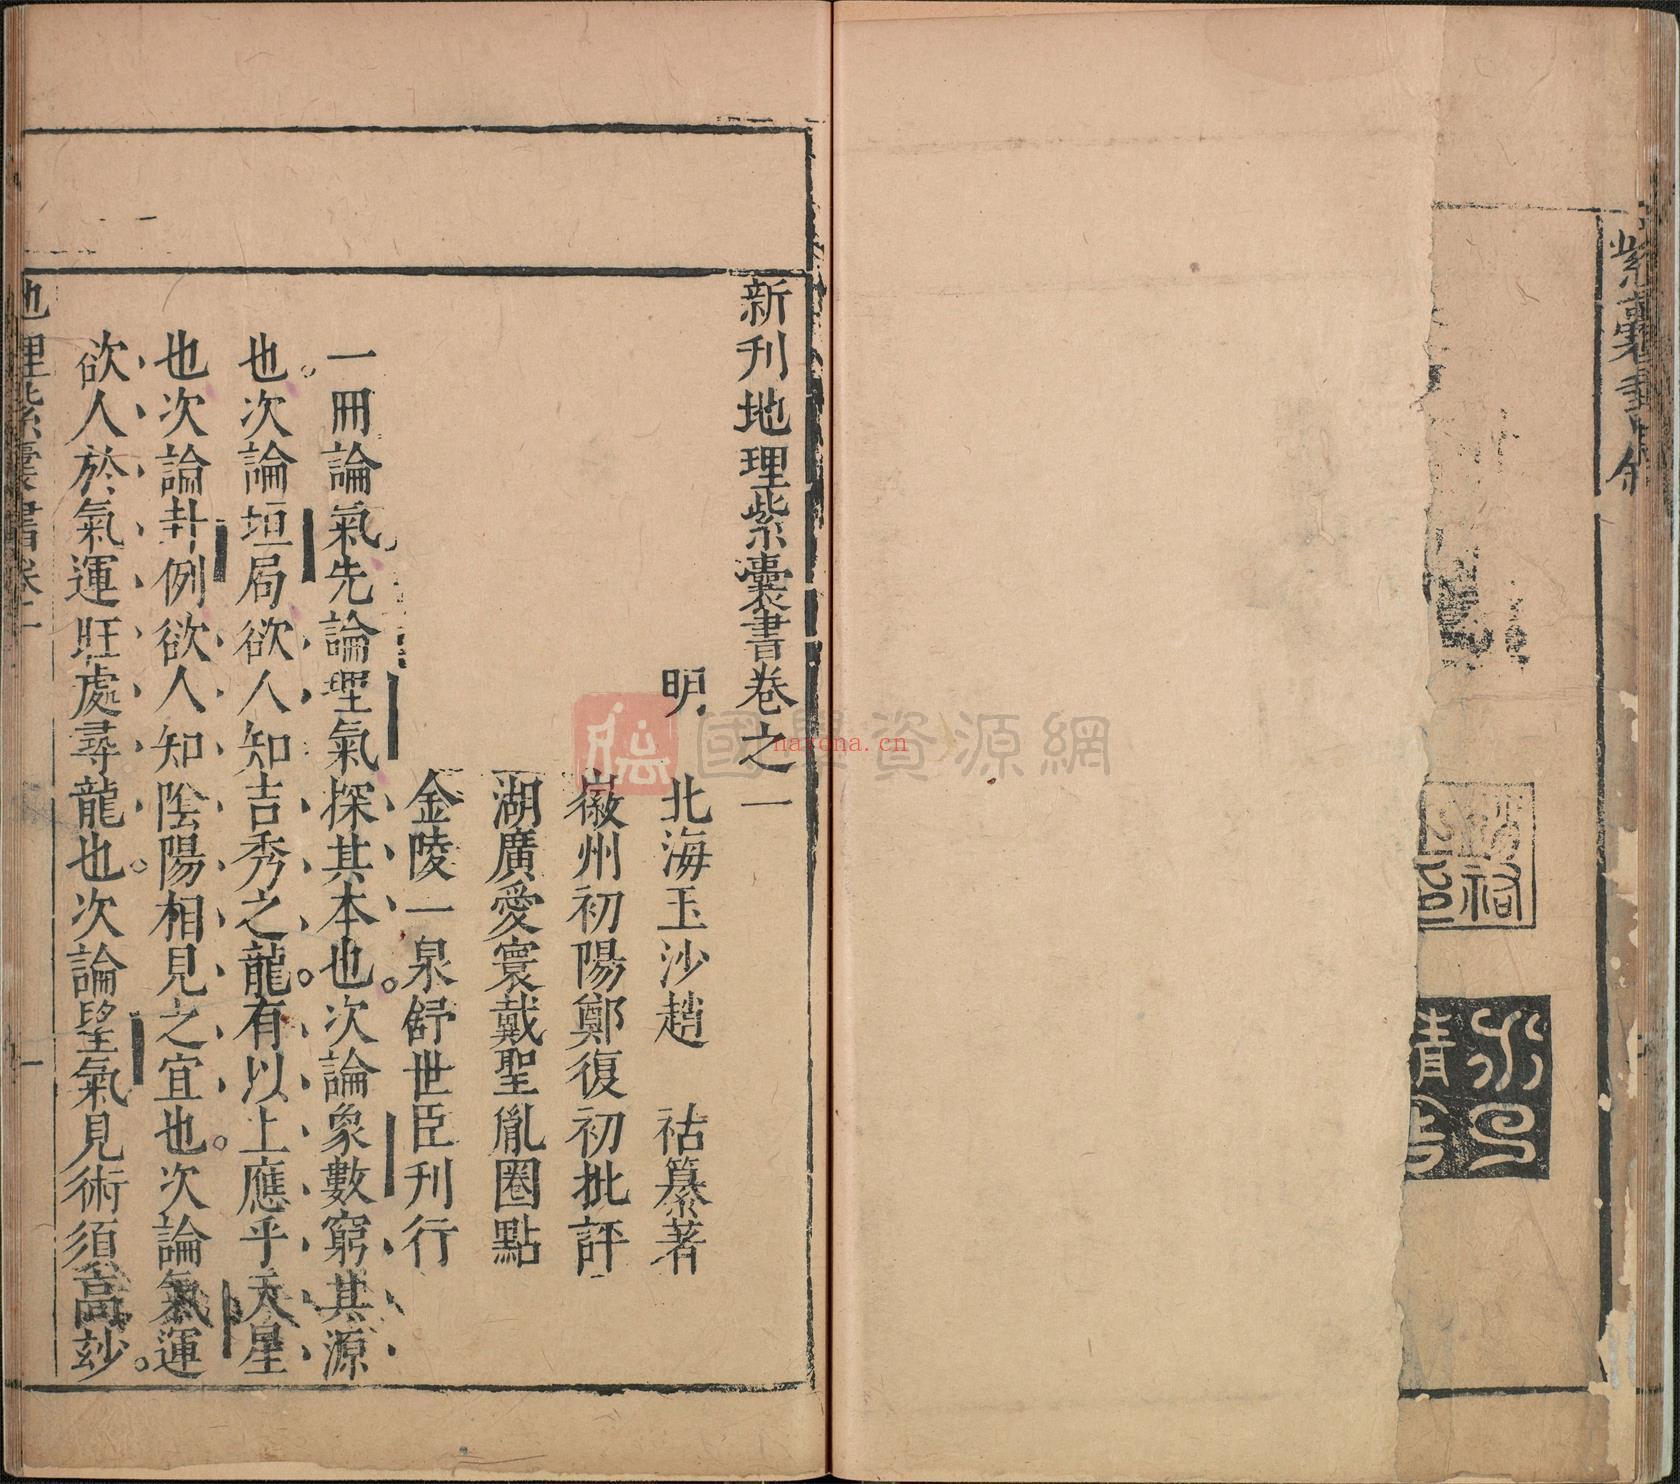 紫囊書
新刊地理紫囊書卷之一
明 北海玉沙趙 祜纂著
徽州初陽鄭復初批評
湖廣愛寰戴聖胤圈點
金陵一泉舒世臣刊行
一冊論氣先論理氣探其本也次論象數窮其源
也次論垣局欲人知吉秀之龍有以上應乎天星
也次論卦例欲人知陰陽相見之宜也次論氣運
欲人於氣運旺處尋龍也次論望氣見術須高玅
地理紫囊書卷一
一
國學資源網
nayona.cn